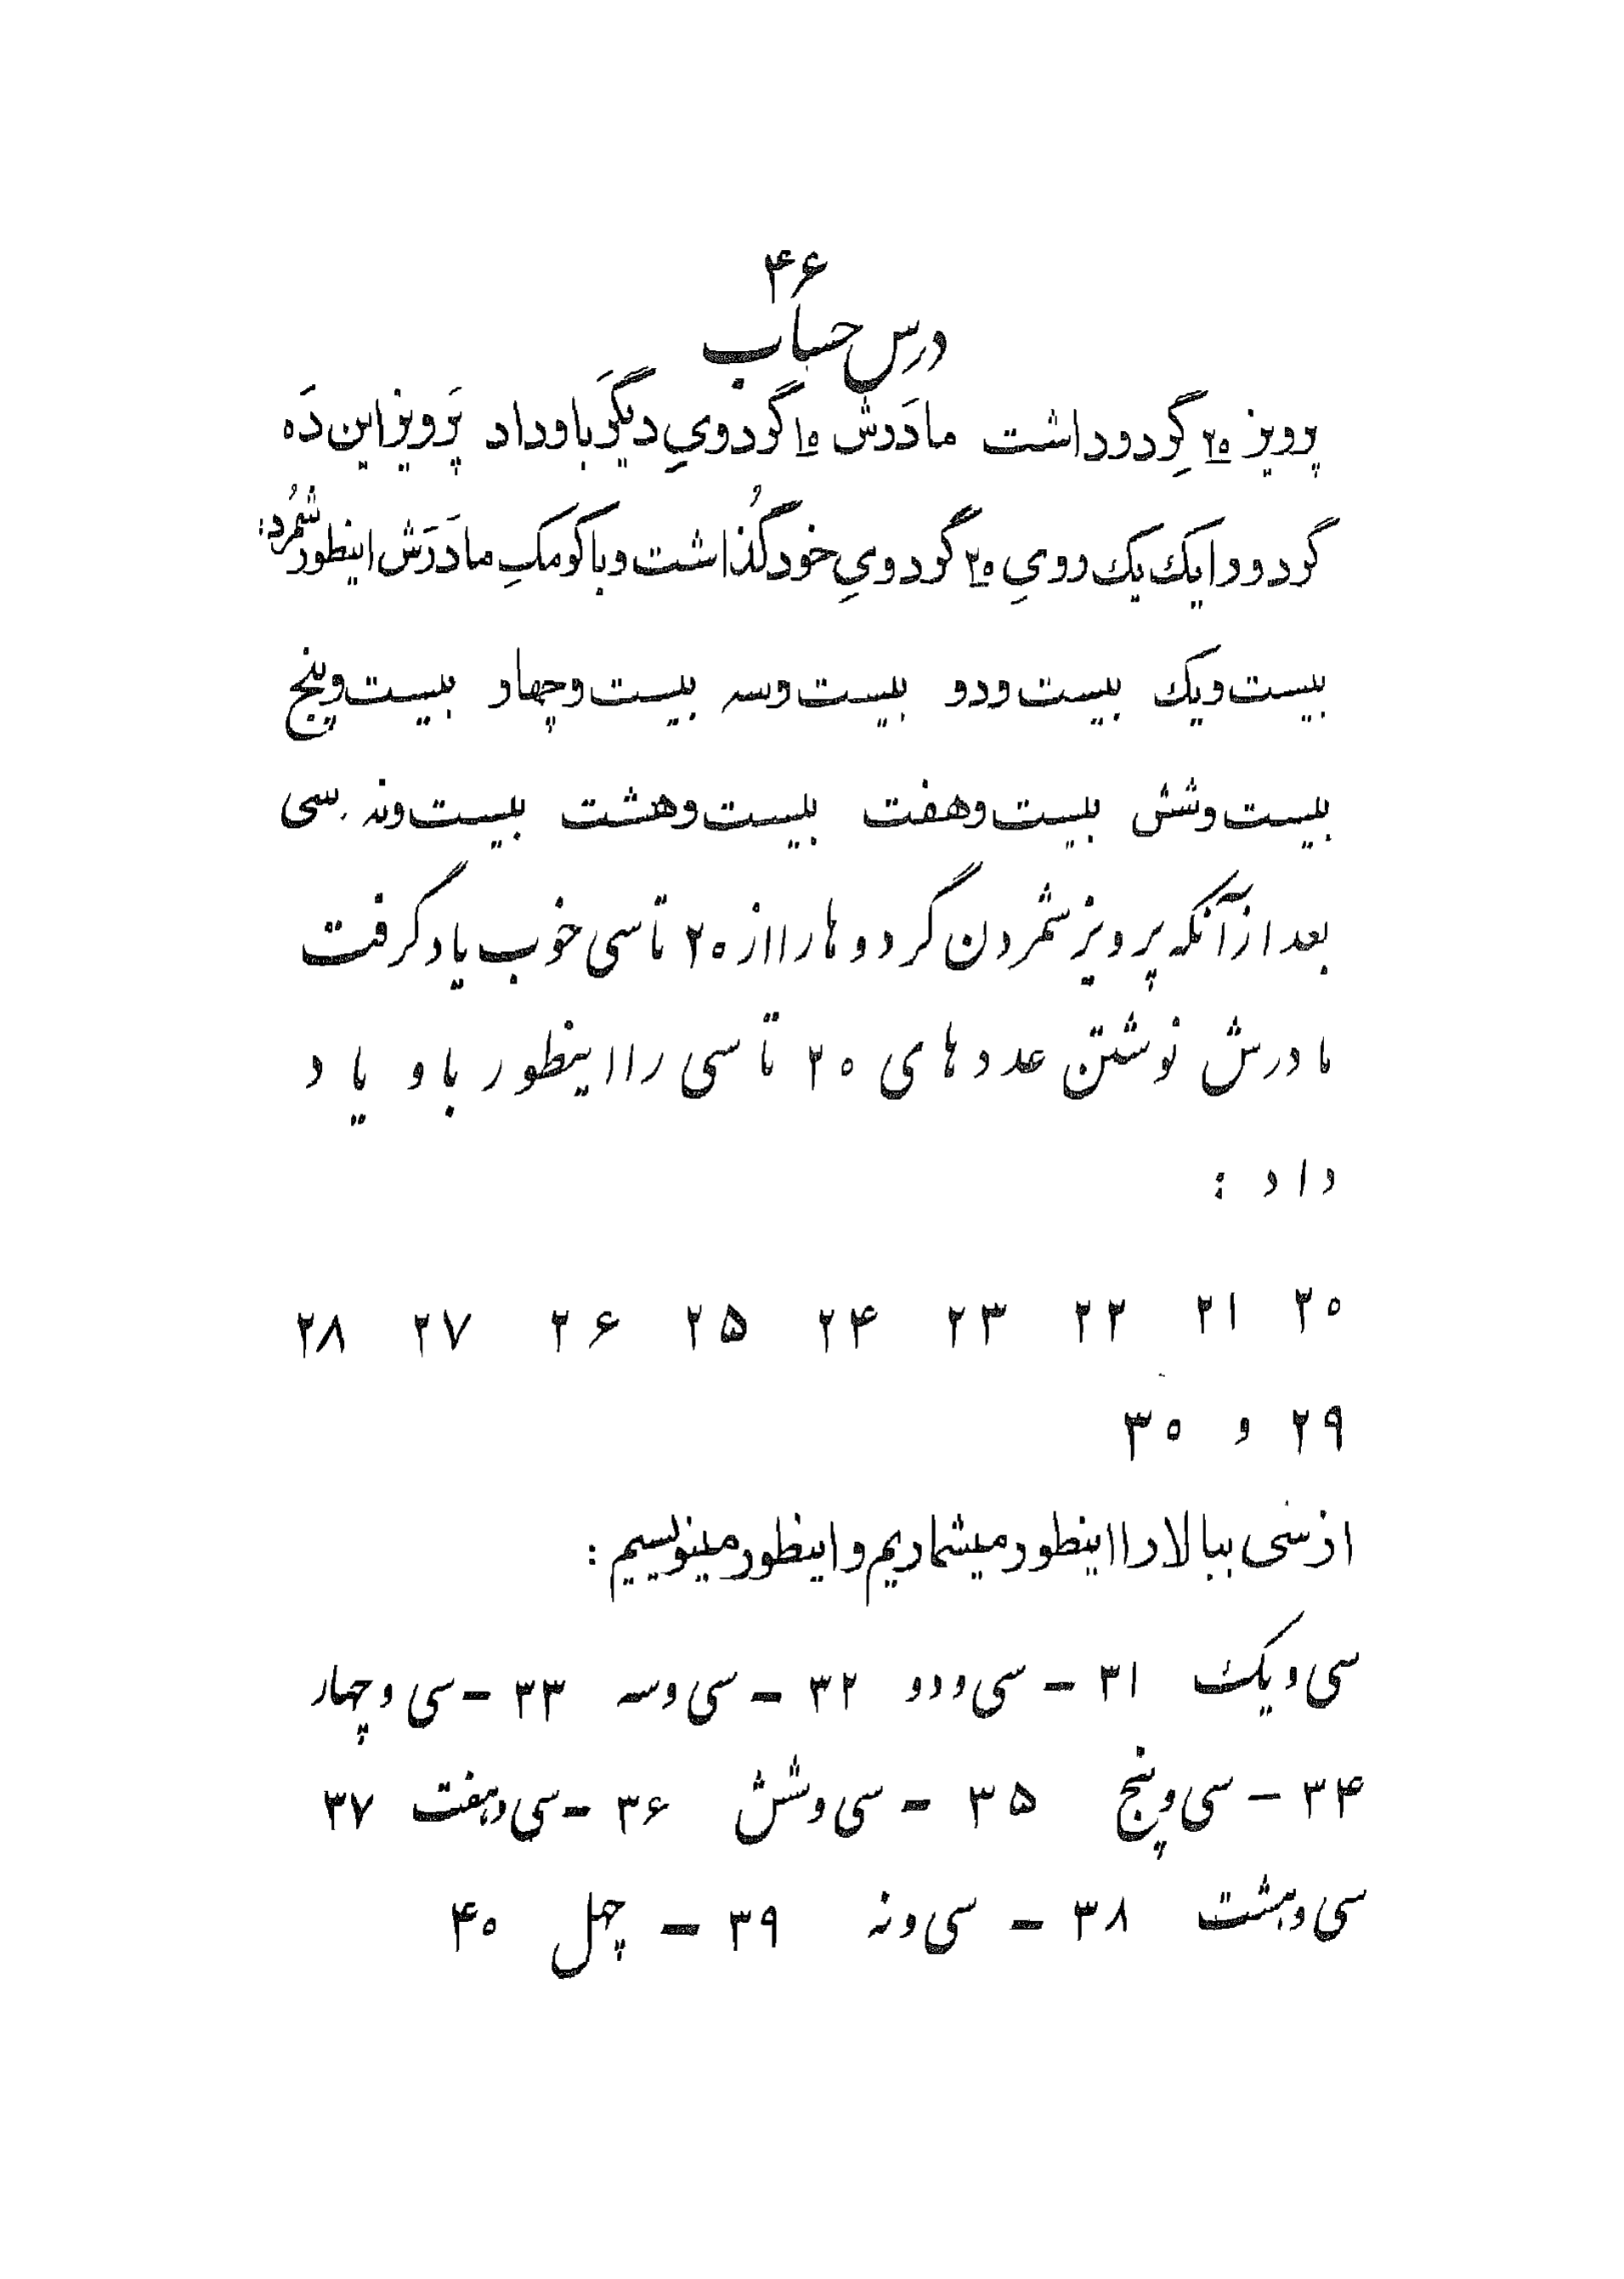 ۴۶
درس حساب
پرویز ۲۰ گِردو داشت مادَرَش ۱۰ گردویِ دیگَر باو داد پَرویز این دَه
گردو را یک یک رویِ ۲۰ گردویِ خود گُذاشت و با کومکِ مادَرَش اینطور شُمُرد:
بیست و یک بیست و دو بیست و سه بیست و چهار بیست و پنج
بیست و شش بیست و هفت بیست و هشت بیست و نه سی
بعد از آنکه پرویز شمردن گردوها را از ۲۰ تا سی خوب یاد گرفت
مادرش نوشتن عددهای ۲۰ تا سی را اینطور باو یاد
داد :
۲۰ ۲۱ ۲۲ ۲۳ ۲۴ ۲۵ ۲۶ ۲۷ ۲۸
۲۹ و ۳۰
از سی ببالا را اینطور میشماریم و اینطور مینویسیم :
سی و یک ۳۱ - سی و دو ۳۲ - سی و سه ۳۳ - سی و چهار
۳۴ - سی و پنج ۳۵ - سی و شش ۳۶ - سی و هفت ۳۷
سی و هشت ۳۸ - سی و نه ۳۹ - چهل ۴۰